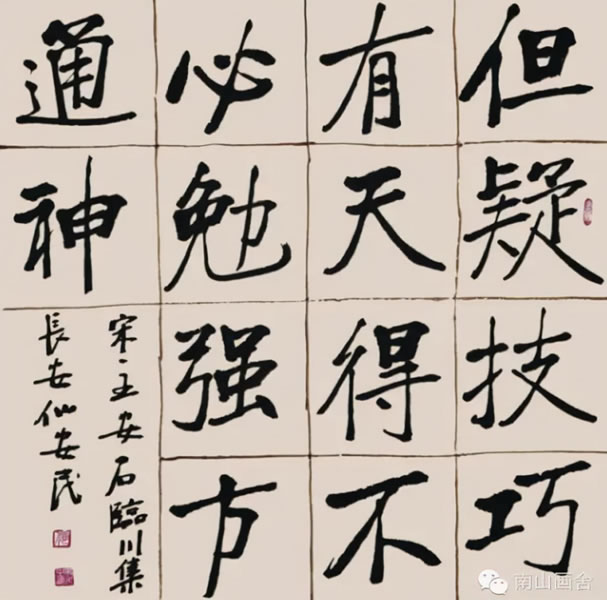 但疑技巧
有天得不
必勉强方
通神
宋·王安石臨川集
長安仙安民
南山画舍